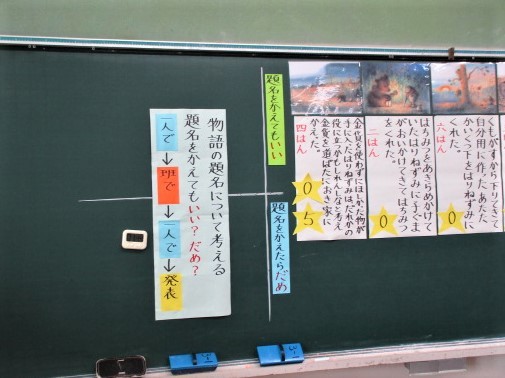 くもがすから下りてきて
自分用に作った、あたた
かいくつ下をはりねずみに
くれた。
六はん
0
はちみつをあきらめかけて
いたはりねずみに、くまが
おいかけてきてはちみつ
をくれた。
二はん
0
金貨を使わずにほしかった物が
手に入ったはりねずみは、だれかの
役に立つかもしれないなと考え
金貨を道ばたにおき家に
かえった。
四はん
0
5
題名をかえてもいい
題名をかえたらだめ
物語の題名について考える
題名をかえてもいい?だめ?
一人で→班で→一人で→発表